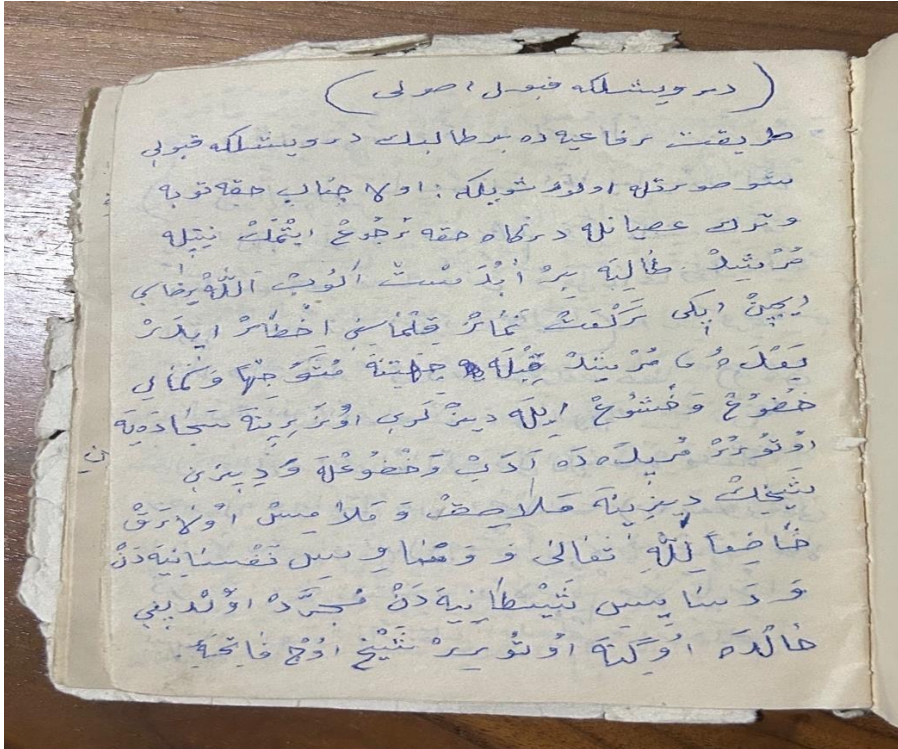 (درويشلكه قبول اصولى)
طريقت رفاعيه ده بر طالبك درويشلكه قبولى
شو صورتله اولور شويلكه : اولا جناب حقه توبه
و ترك عصيانله درگاه حقه رُجُوعْ ايتْمَكْ نيتيله
مُرْشِدْ طَالِبَه بِرْ اَبْدَسْتْ اَلُوبْ اَللّٰهْ رِضَاسِى
اِيچِنْ اِيكِى رَكْعَتْ نَمَازْ قِلْمَاسِنِى اِخْطَارْ اِيدَرْ
بَعْدَهُ مُرْشِدْ قِبْلَه جِهَتِنَه مُتَوَجِّهًا وَ كَمَالِ
خُضُوعْ وَ خُشُوعْ اِيلَه ديزْ لَرِى اوُزَرِينَه سَجَادَه يَه
اوُتوُرُرْ مُرِيدْ دَه اَدَبْ وَ خُضُوعْلَه وَ دِيزِينِ
شَيْخِكْ دِيزِينَه مُلَاصِقْ وَ مُلَامِسْ اوُلَارَقْ
خَاضِعاً لِلّٰهِ تَعَالٰى وَ وَسَاوِسِ نَفْسَانِيَه دَنْ
وَ دَسَايِسِ شَيْطَانِيَه دَنْ مُجَرَّدْ اوُلْدِيغِى
حَالْدَه اوُكِنَه اوُتوُرِيرْ شَيْخْ اوُچْ فَاتِحَه